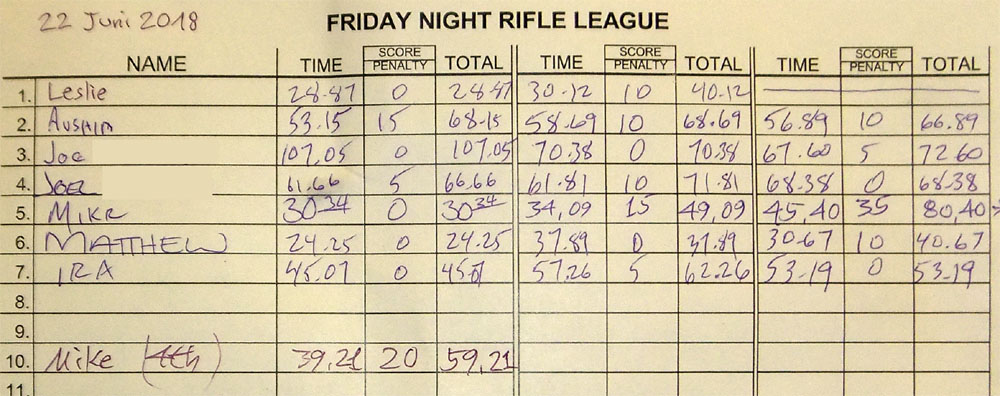 22 Juni 2018 FRIDAY NIGHT RIFLE LEAGUE
NAME TIME SCORE PENALTY TOTAL TIME SCORE PENALTY TOTAL TIME SCORE PENALTY TOTAL
1. Leslie 28.87 0 28.87 30.12 10 40.12
2. Austin 53.15 15 68.15 58.69 10 68.69 56.89 10 66.89
3. Joe 107.05 0 107.05 70.38 0 70.38 67.60 5 72.60
4. JOEL 61.66 5 66.66 61.81 10 71.81 68.38 0 68.38
5. MIKE 30 34 0 30 34 34,09 15 49,09 45,40 35 80,40
6. MATTHEW 24.25 0 24.25 37.89 0 37.89 30.67 10 40.67
7. IRA 45.07 0 45.07 57.26 5 62.26 53.19 0 53.19
8.
9.
10. Mike (4th) 39,21 20 59,21
11.